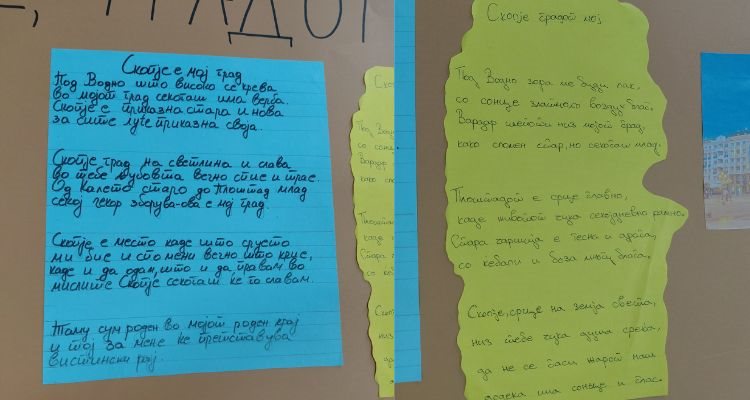 , ГРАДОТ
Скопје е мој град
Под Водно што високо се крева
во мојот град секогаш има верба.
Скопје е приказна стара и нова
за сите луѓе приказна своја.
Скопје град на светлина и слава
во тебе љубовта вечно спие и трае.
Од Калето старо до Плоштад млад
секој чекор зборува-ова е мј град.
Скопје е место каде што срцето
ми бие и спомени вечно што крие,
каде и да одам, што и да правам во
мислите Скопје секогаш ќе го славам.
Тому сум роден во мојот роден крај
и тој за мене ќе претставува
вистински рај.
Скопје градот мој
Под Водно зора ме буди пак,
со сонце златно воздух благ,
Вардар шепоти низ мојот град,
како спомен стар, но секогаш млад.
Плоштадот е срце главно,
каде животот чука секојдневно рамно.
Стара чаршија е тесна и драга,
со кебапи и боза многу блага.
Скопје, срце на земја света,
низ тебе чука душа среќа,
да не се гаси жарот наш
додека има сонце и глас.